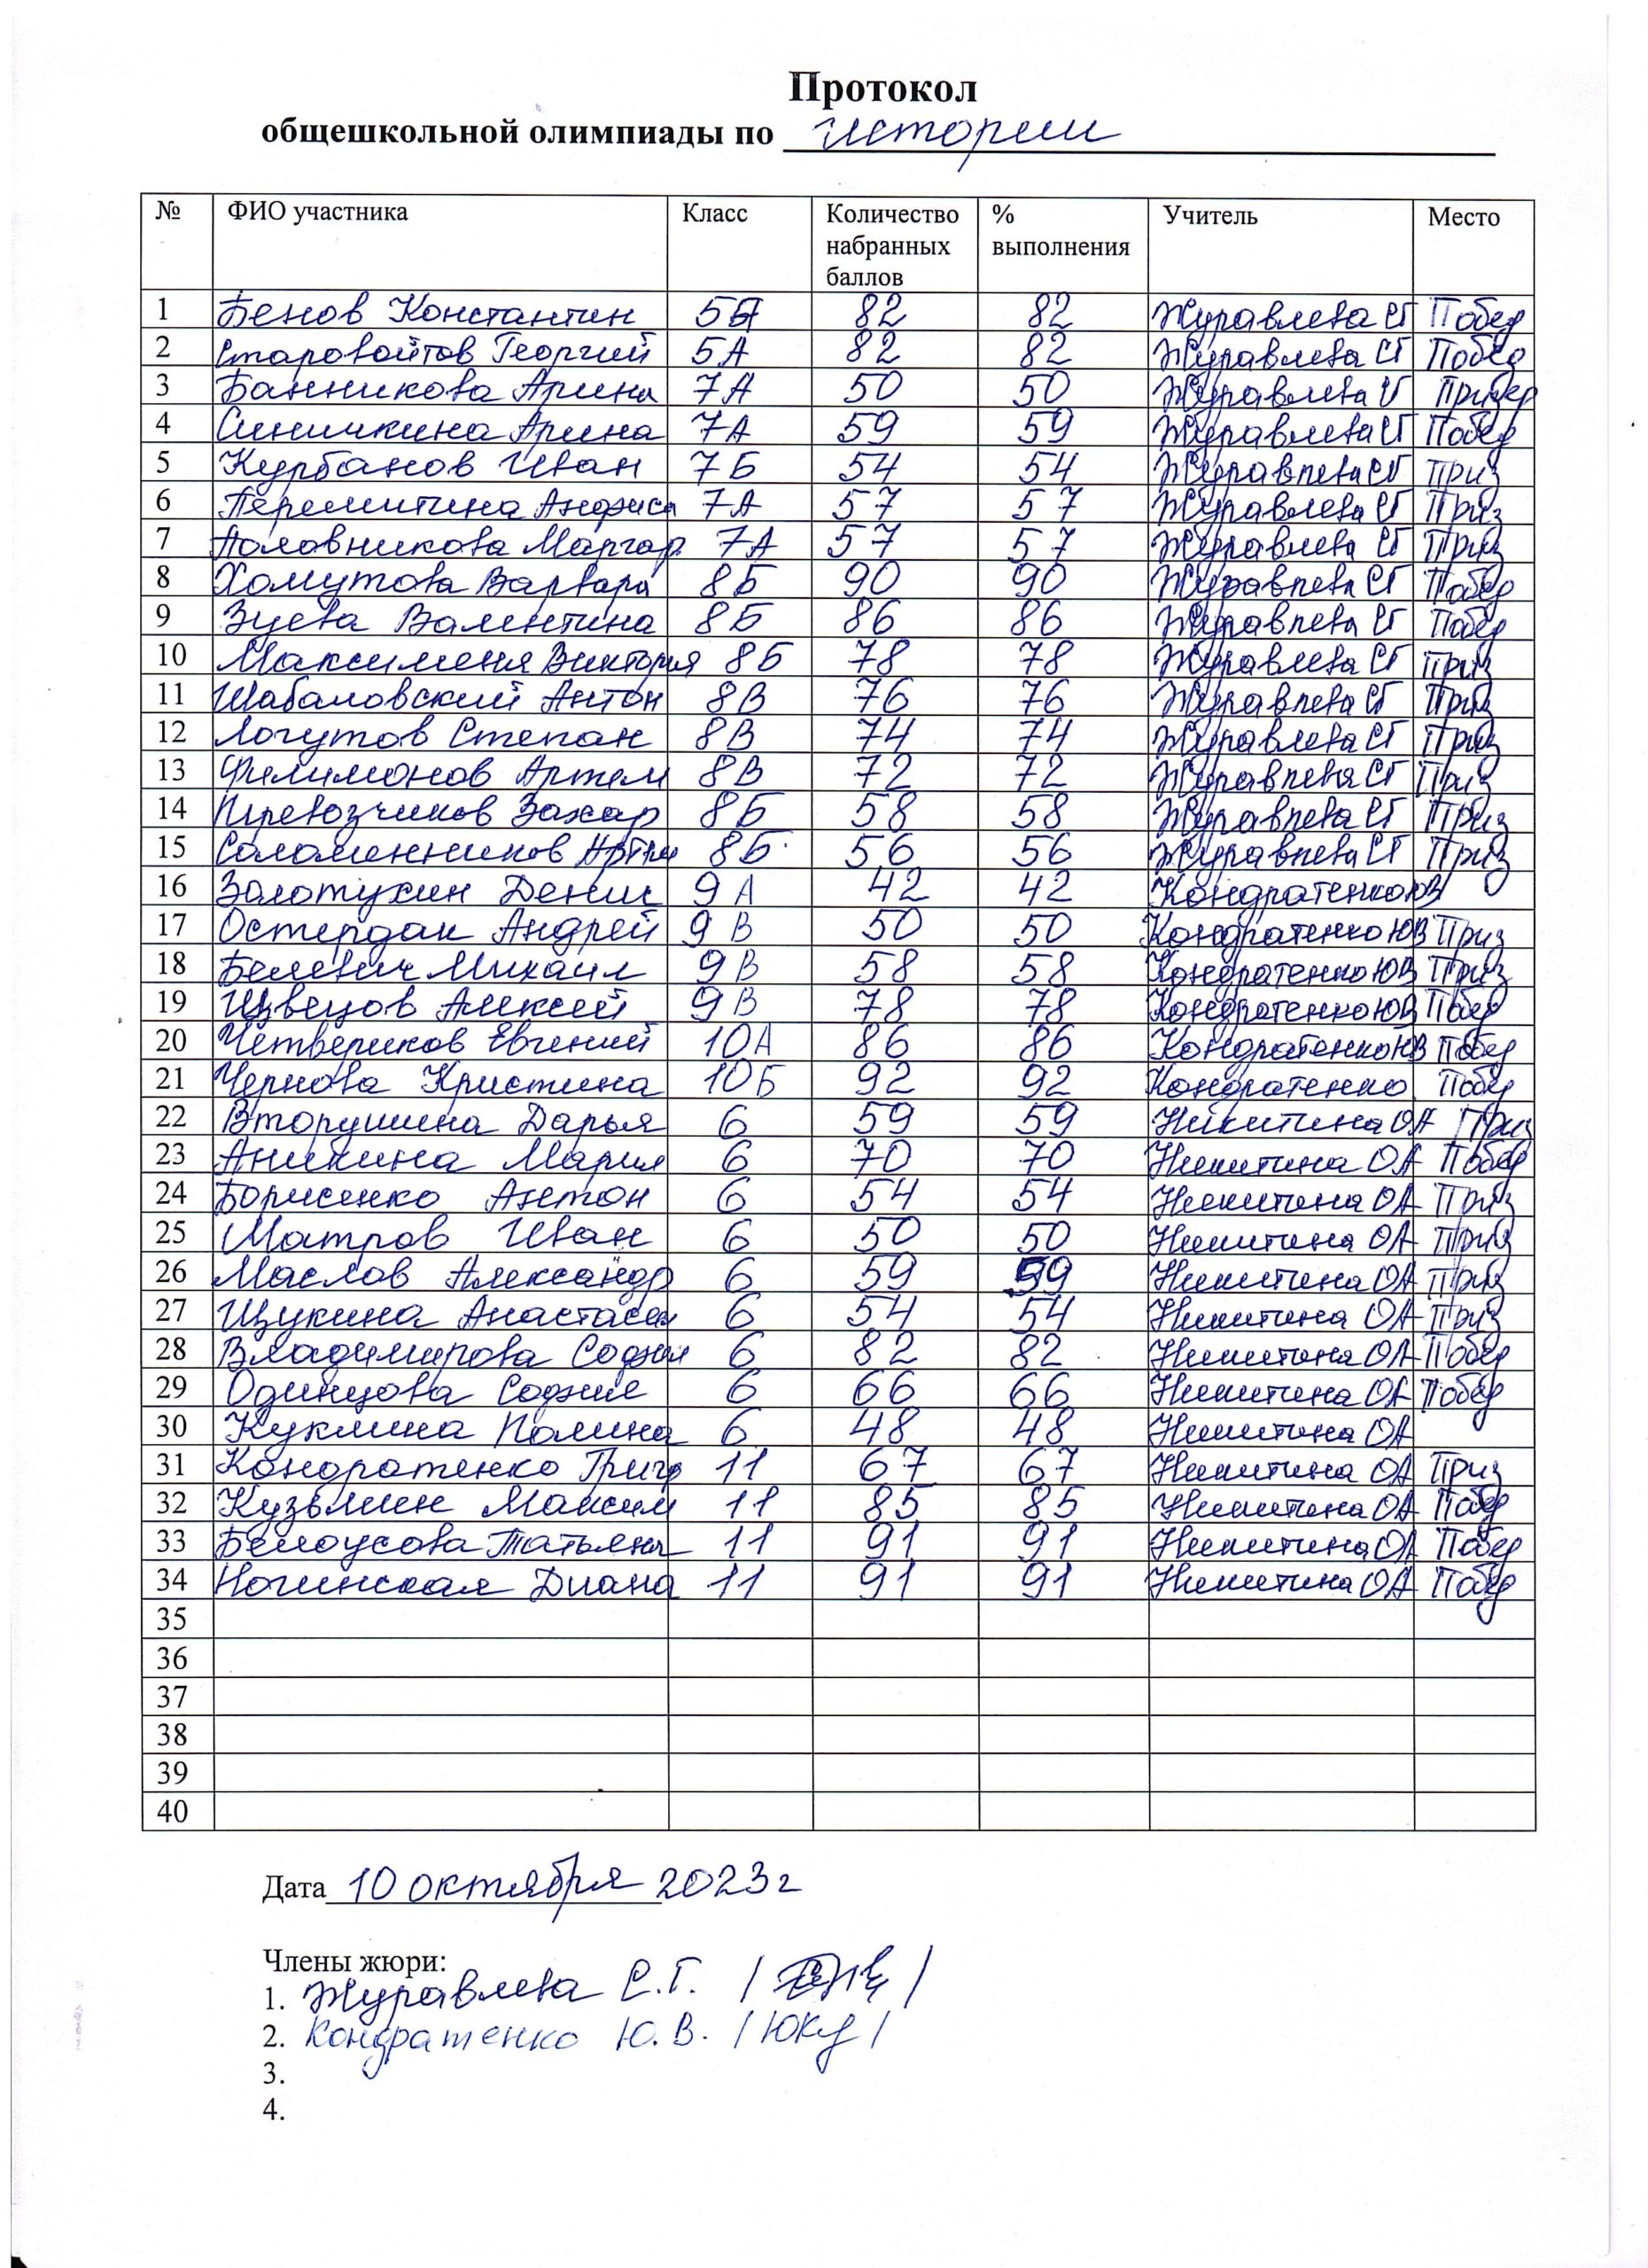 Протокол
общешкольной олимпиады по истории
№ ФИО участника Класс Количество набранных баллов % выполнения Учитель Место
1 Бенов Константин 5А 82 82 Журавлева СГ Побед
2 Старовойтов Георгий 5А 82 82 Журавлева СГ Побед
3 Банникова Арина 7А 50 50 Журавлева СГ Призер
4 Синишкина Арина 7А 59 59 Журавлева СГ Побед
5 Курбанов Иван 7Б 54 54 Журавлева СГ Приз
6 Перемитина Анфиса 7А 57 57 Журавлева СГ Приз
7 Половникова Маргар 7А 57 57 Журавлева СГ Приз
8 Хомутова Варвара 8Б 90 90 Журавлева СГ Побед
9 Зуева Валентина 8Б 86 86 Журавлева СГ Побед
10 Максименя Виктория 8Б 78 78 Журавлева СГ Приз
11 Шабаловский Антон 8В 76 76 Журавлева СГ Приз
12 Логутов Степан 8В 74 74 Журавлева СГ Приз
13 Филимонов Артем 8В 72 72 Журавлева СГ Приз
14 Перевозчиков Захар 8Б 58 58 Журавлева СГ Приз
15 Соломенников Артем 8Б 56 56 Журавлева СГ Приз
16 Золотухин Денис 9А 42 42 Кондратенко ЮВ
17 Остердак Андрей 9В 50 50 Кондратенко ЮВ Приз
18 Белевич Михаил 9В 58 58 Кондратенко ЮВ Приз
19 Швецов Алексей 9В 78 78 Кондратенко ЮВ Побед
20 Четвериков Евгений 10А 86 86 Кондратенко ЮВ Побед
21 Чернова Кристина 10Б 92 92 Кондратенко Побед
22 Вторушина Дарья 6 59 59 Никитина ОА Приз
23 Аникина Мария 6 70 70 Никитина ОА Побед
24 Борисенко Антон 6 54 54 Никитина ОА Приз
25 Матров Иван 6 50 50 Никитина ОА Приз
26 Маслов Александр 6 59 59 Никитина ОА Приз
27 Щукина Анастасия 6 54 54 Никитина ОА Приз
28 Владимирова София 6 82 82 Никитина ОА Побед
29 Одинцова София 6 66 66 Никитина ОА Побед
30 Куклина Полина 6 48 48 Никитина ОА
31 Кондратенко Григ 11 67 67 Никитина ОА Приз
32 Кузьмин Максим 11 85 85 Никитина ОА Побед
33 Белоусова Татьяна 11 91 91 Никитина ОА Побед
34 Ногинская Диана 11 91 91 Никитина ОА Побед
35
36
37
38
39
40
Дата 10 октября 2023 г
Члены жюри:
1. Журавлева С.Г.
2. Кондратенко Ю.В.
3.
4.